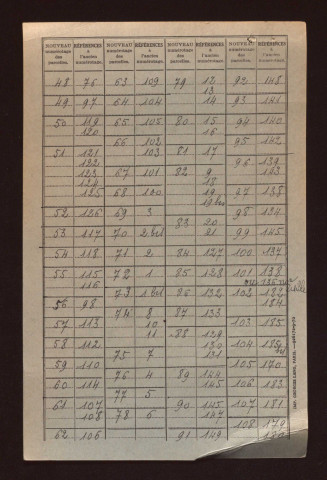 NOUVEAU numérotage des parcelles.
RÉFÉRENCES à l'ancien numérotage.
NOUVEAU numérotage des parcelles.
RÉFÉRENCES à l'ancien numérotage.
NOUVEAU numérotage des parcelles.
RÉFÉRENCES à l'ancien numérotage.
NOUVEAU numérotage des parcelles.
RÉFÉRENCES à l'ancien numérotage.
48 76 63 109 79 12 92 148
13
49 97 64 104 14 93 141
50 119 65 105 80 15 94 140
120 16
66 102 95 142
51 121 103 81 17
122 96 139
123 67 101 82 9 143
124 18
125 68 100 19 97 138
19 bis
52 126 69 3 98 134
83 20
53 117 70 2 bis 21 99 145
54 118 71 2 84 127 100 137
55 115 72 1 85 128 101 138
116
73 1 bis 86 132 102 182
56 98 184
74 8 87 133
57 113 10 103 185
11 88 129
58 112 130 104 185
75 7 131
59 110 105 170
76 4 89 144
60 114 145 106 183
77 5
61 107 90 145 107 181
108 78 6 147
108 179
62 106 91 149 180